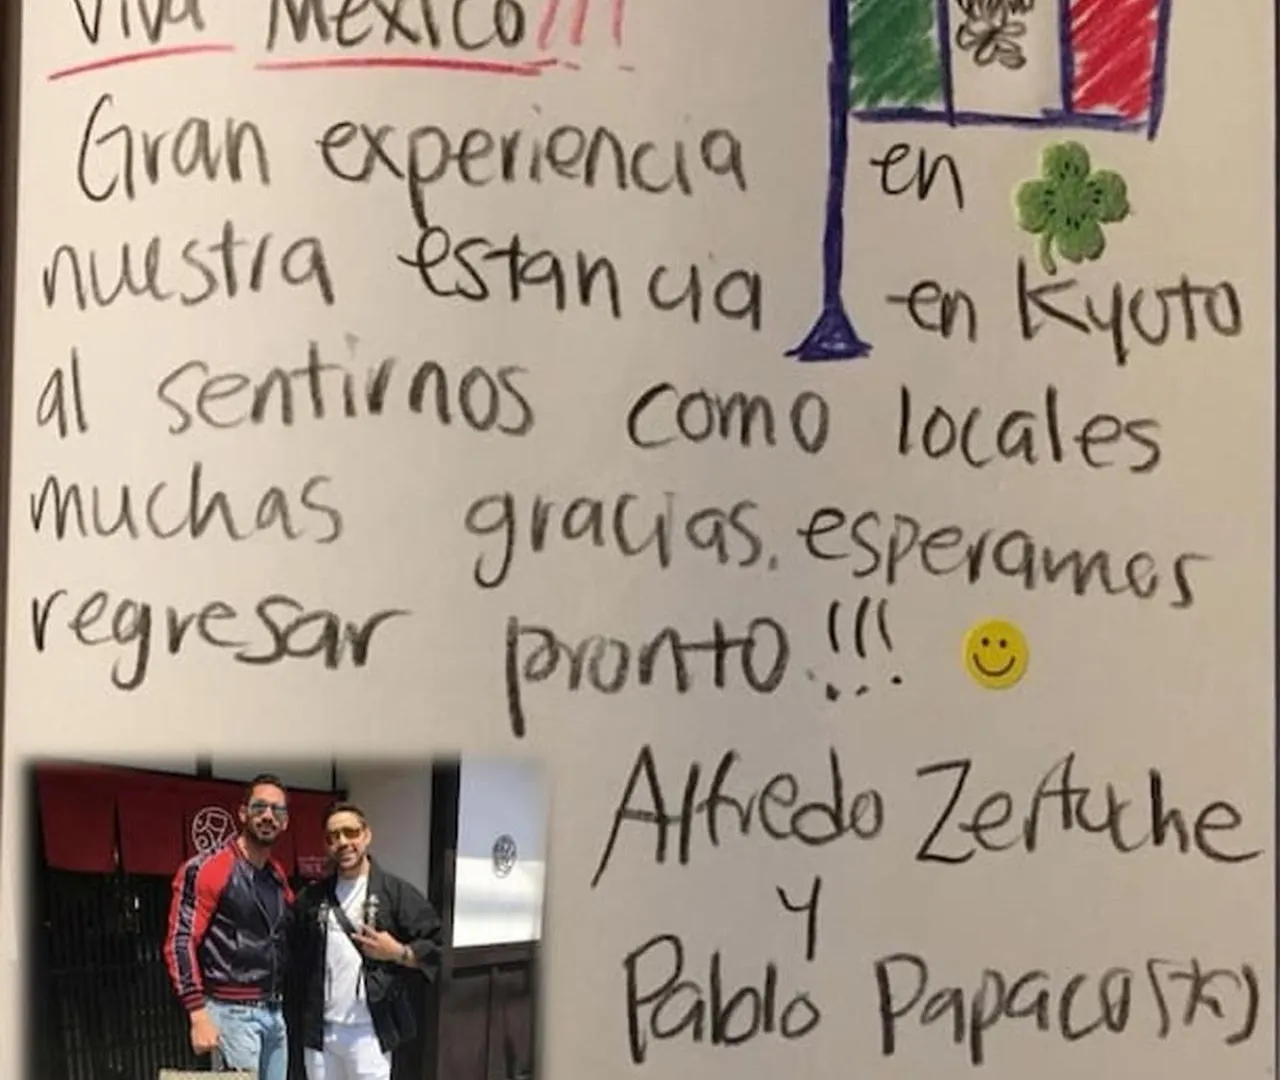 Viva México!!!
Gran experiencia en
nuestra estancia en Kyoto
al sentirnos como locales
muchas gracias. esperamos
regresar pronto!!!
Alfredo Zertuche
y
Pablo